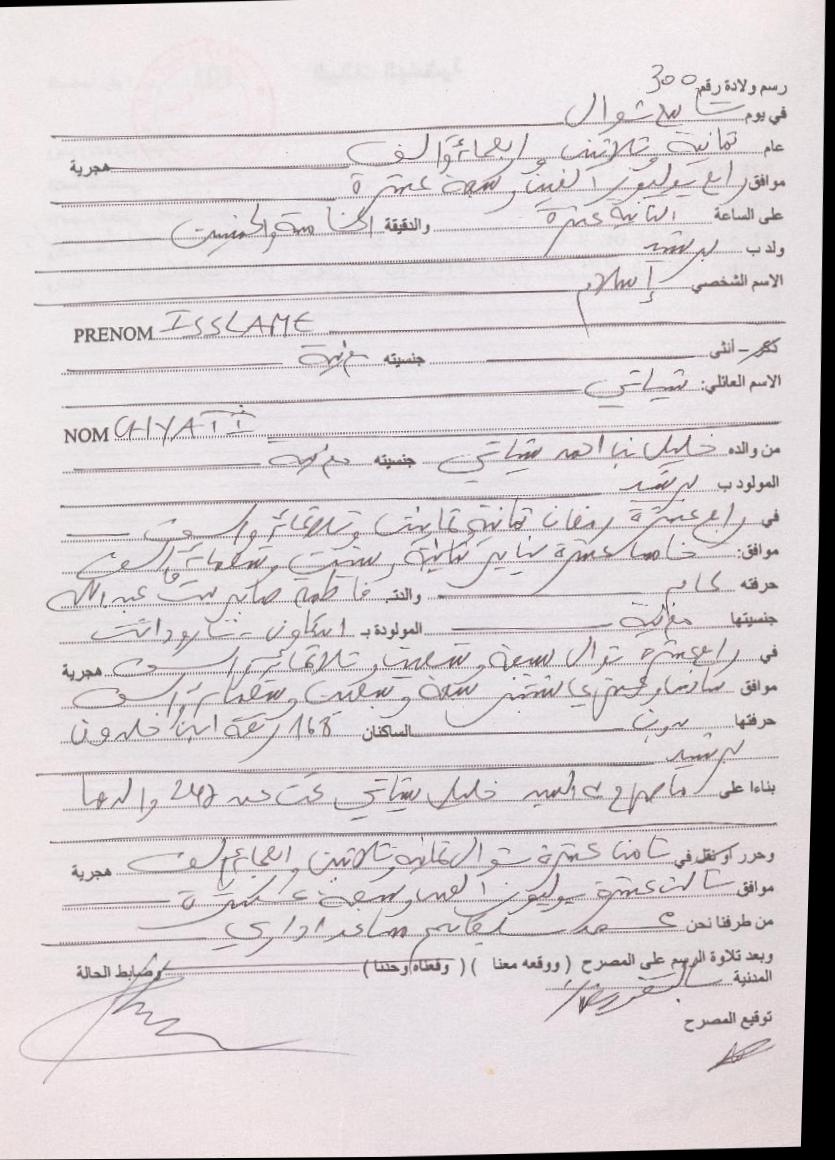 رسم ولادة رقم 300
في يوم شوال
عام ثمانية وثلاثين وأربعمائة وألف هجرية
موافق رابع يوليوز ألفين وسبعة عشرة
على الساعة الثانية عشرة والدقيقة الخامسة والخمسين
ولد ب برشيد
الاسم الشخصي إسلام
PRENOM ISSLAME
ذكر – أنثى جنسيته مغربية
الاسم العائلي: شياتي
NOM CHYATI
من والده خليل بن احمد شياتي جنسيته مغربية
المولود ب برشيد
في رابع عشرة رمضان ثمانية وثمانين وثلاثمائة وألف
موافق: خامس عشرة يناير وستين وتسعمائة وألف
حرفته والدته فاطمة صابر بنت عبد الله
جنسيتها مغربية المولودة ب تارودانت
في رابع عشرة شوال سبعة وتسعين وثلاثمائة وألف هجرية
موافق سبعة وسبعين وتسعمائة وألف
حرفتها بدون الساكنان 168 زنقة ابن خلدون
برشيد
بناءا على ما صرح به السيد خليل شياتي تحت عدد 242 والدها
وحرر او نقل في ثامن عشرة شوال ثمانية وثلاثين وأربعمائة وألف هجرية
موافق ثالث عشرة يوليوز ألفين وسبعة عشرة
من طرفنا نحن محمد بلقاسم مساعد اداري
وبعد تلاوة الرسم على المصرح ( ووقعه معنا ) ( وقعناه وحدنا ) وضابط الحالة
المدنية بالتفويض
توقيع المصرح